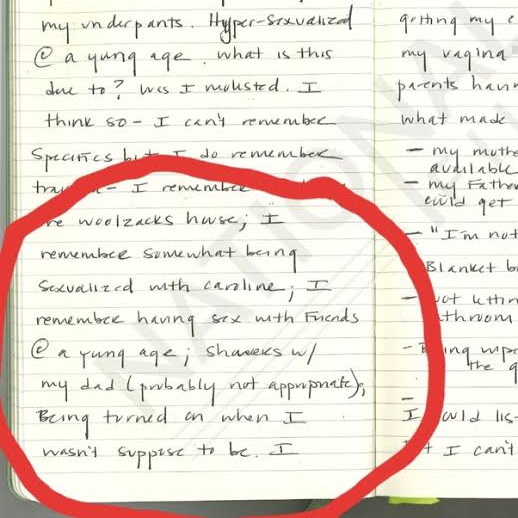 my underpants. Hyper-sexualized
@ a yung age. what is this
due to? Was I molested. I
think so - I can't remember
specifics but I do remember
trau - I remember
woolzacks house; I
remember somewhat being
sexualized with caroline; I
remember having sex with Friends
@ a yung age; showers w/
my dad (probably not appropriate);
Being turned on when I
wasn't suppose to be. I
getting my
my vagina
parents
what made
- my
available
- my Father
could get
- "I'm not
Blanket
-
-
the
I
I can't
NATIONAL